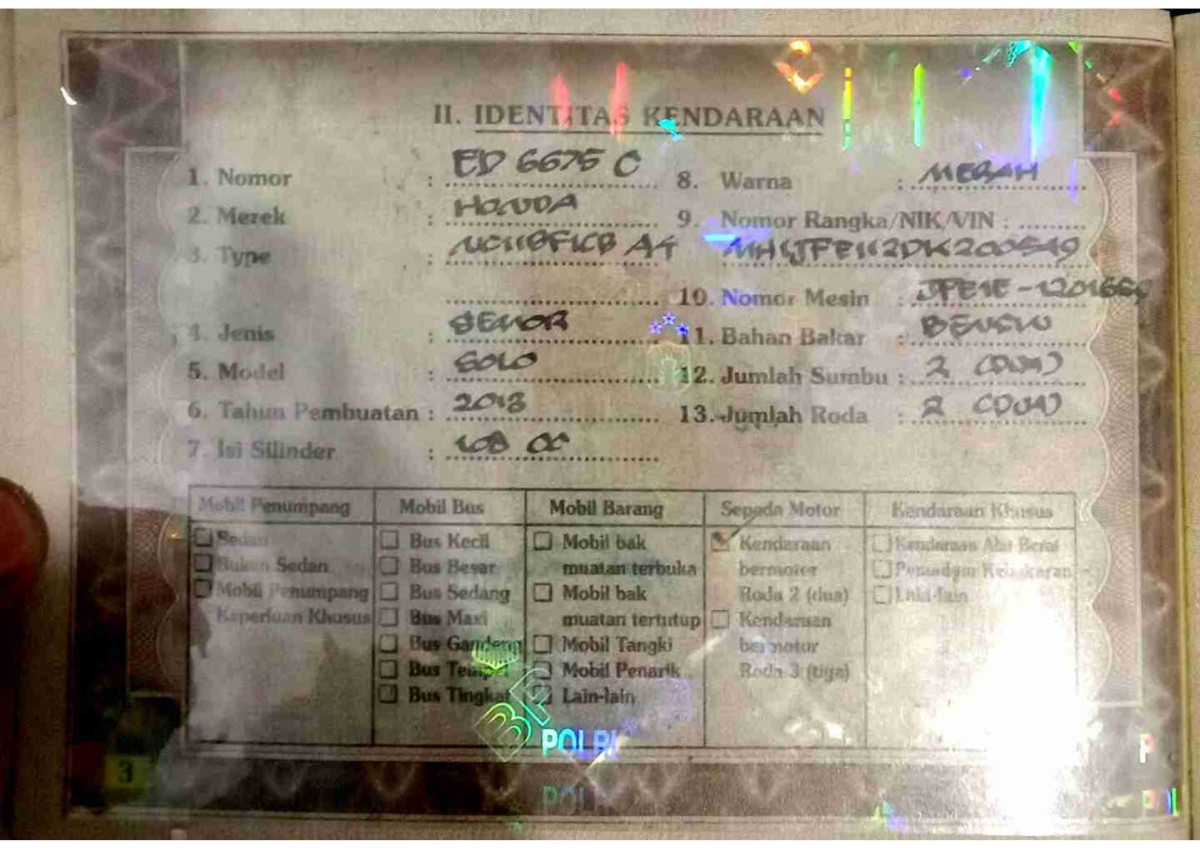 II. IDENTITAS KENDARAAN
1. Nomor : ED 6675 C
2. Merek : HONDA
3. Type : A4
4. Jenis :
5. Model : SOLO
6. Tahun Pembuatan : 2013
7. Isi Silinder : 108 CC
8. Warna : MERAH
9. Nomor Rangka/NIK/VIN :
10. Nomor Mesin :
11. Bahan Bakar : BENSIN
12. Jumlah Sumbu : 2 (DUA)
13. Jumlah Roda : 2 (DUA)
Mobil Penumpang
Sedan
Bukan Sedan
Mobil Penumpang
Keperluan Khusus
Mobil Bus
Bus Kecil
Bus Besar
Bus Sedang
Bus Maxi
Bus Gandeng
Bus Tempel
Bus Tingkat
Mobil Barang
Mobil bak
muatan terbuka
Mobil bak
muatan tertutup
Mobil Tangki
Mobil Penarik
Lain-lain
Sepeda Motor
Kendaraan
bermotor
Roda 2 (dua)
Kendaraan
bermotor
Roda 3 (tiga)
Kendaraan Khusus
Kendaraan Alat Berat
Pemadam Kebakaran
Lain-lain
POLRI
3